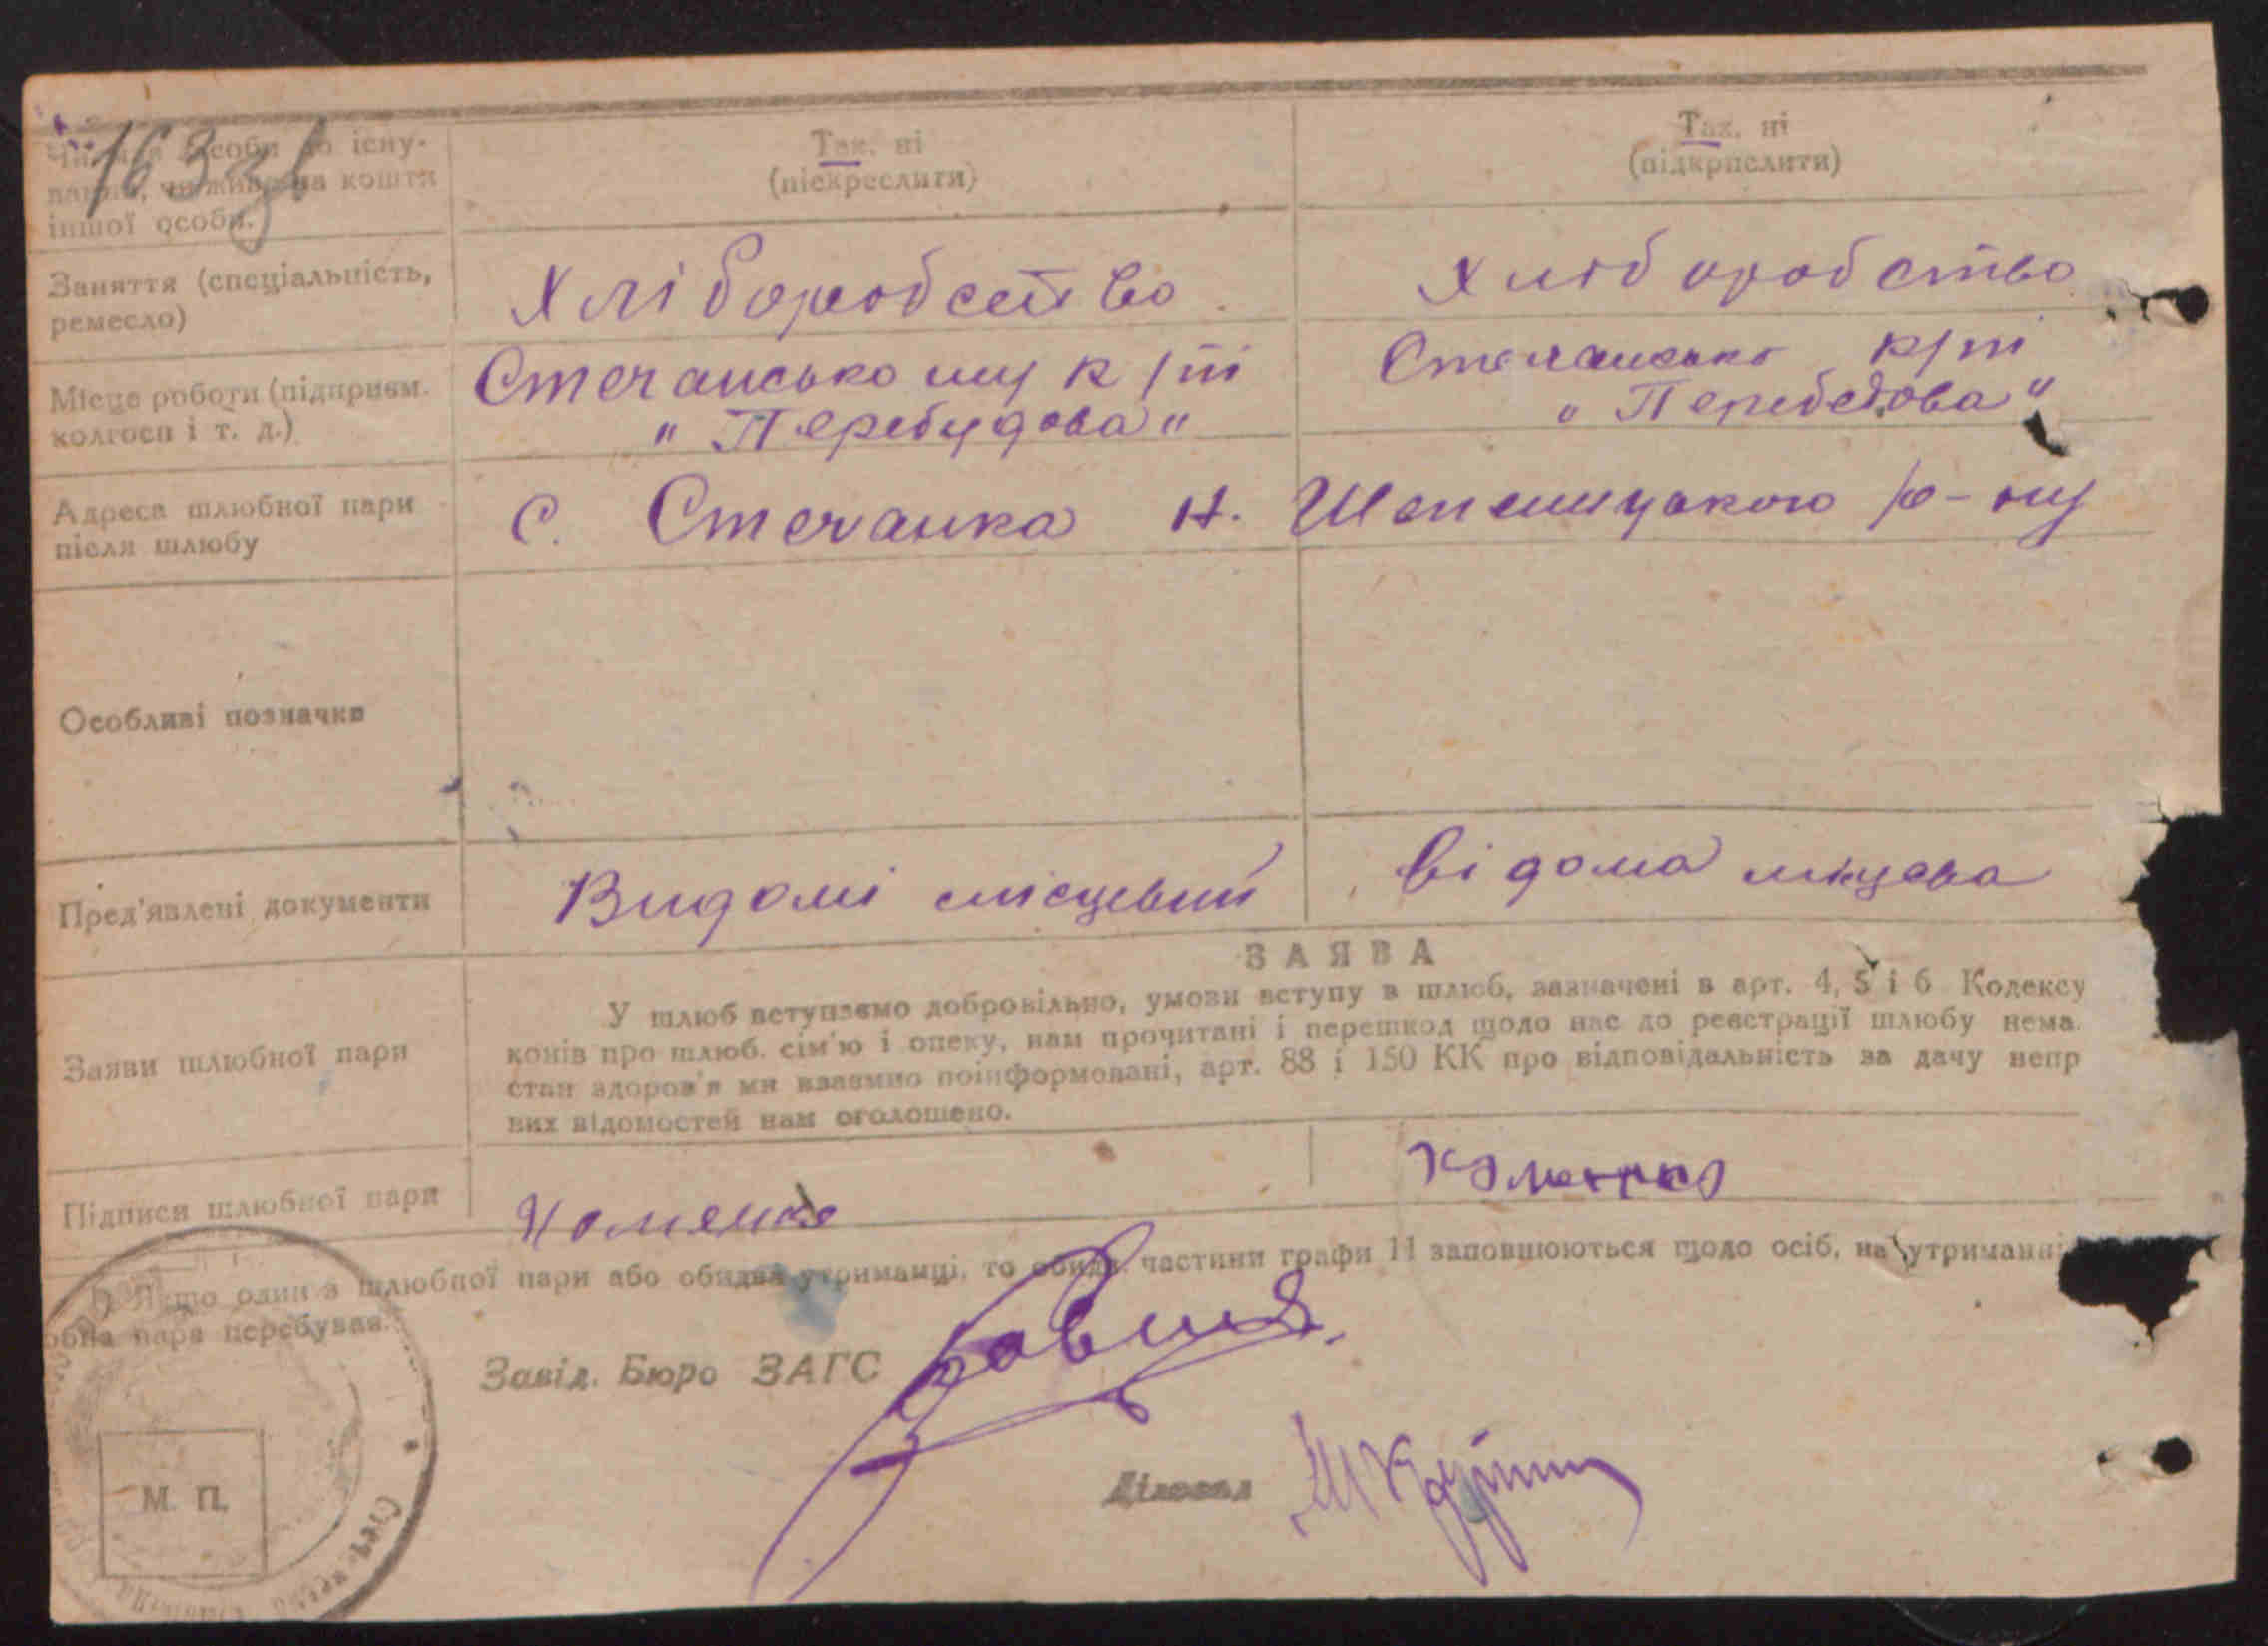 163
існу-
на кошти
іншої особи.
Так, ні
(піскреслити)
Так, ні
(підкрислити)
Заняття (спеціальність,
ремесло)
Хліборобство
Хліборобство
Місце роботи (підприєм.
колгосп і т. д.)
Стечанському к/гі
"Перебудова"
к/гі
"Перебедова"
Адреса шлюбної пари
після шлюбу
с. Стечанка Н. Шепелицького р-ну
Особливі позначки
Пред'явлені документи
Видомі місцевий
відома міцева
ЗАЯВА
Заяви шлюбної пари
У шлюб вступаємо добровільно, умови вступу в шлюб, зазначені в арт. 4, 5 і 6 Кодексу
конів про шлюб. сім'ю і опеку, нам прочитані і перешкод щодо нас до реєстрації шлюбу нема.
стан здоров'я ми взаємно поінформовані, арт. 88 і 150 КК про відповідальність за дачу непр
вих відомостей нам оголошено.
Підписи шлюбної пари
Хоменко
1) Якщо один з шлюбної пари або обидва утриманці, то обидві частини графи 11 заповнюються щодо осіб, на утриманні
юбна пара перебуває.
Завід. Бюро ЗАГС
Діловод
М. П.